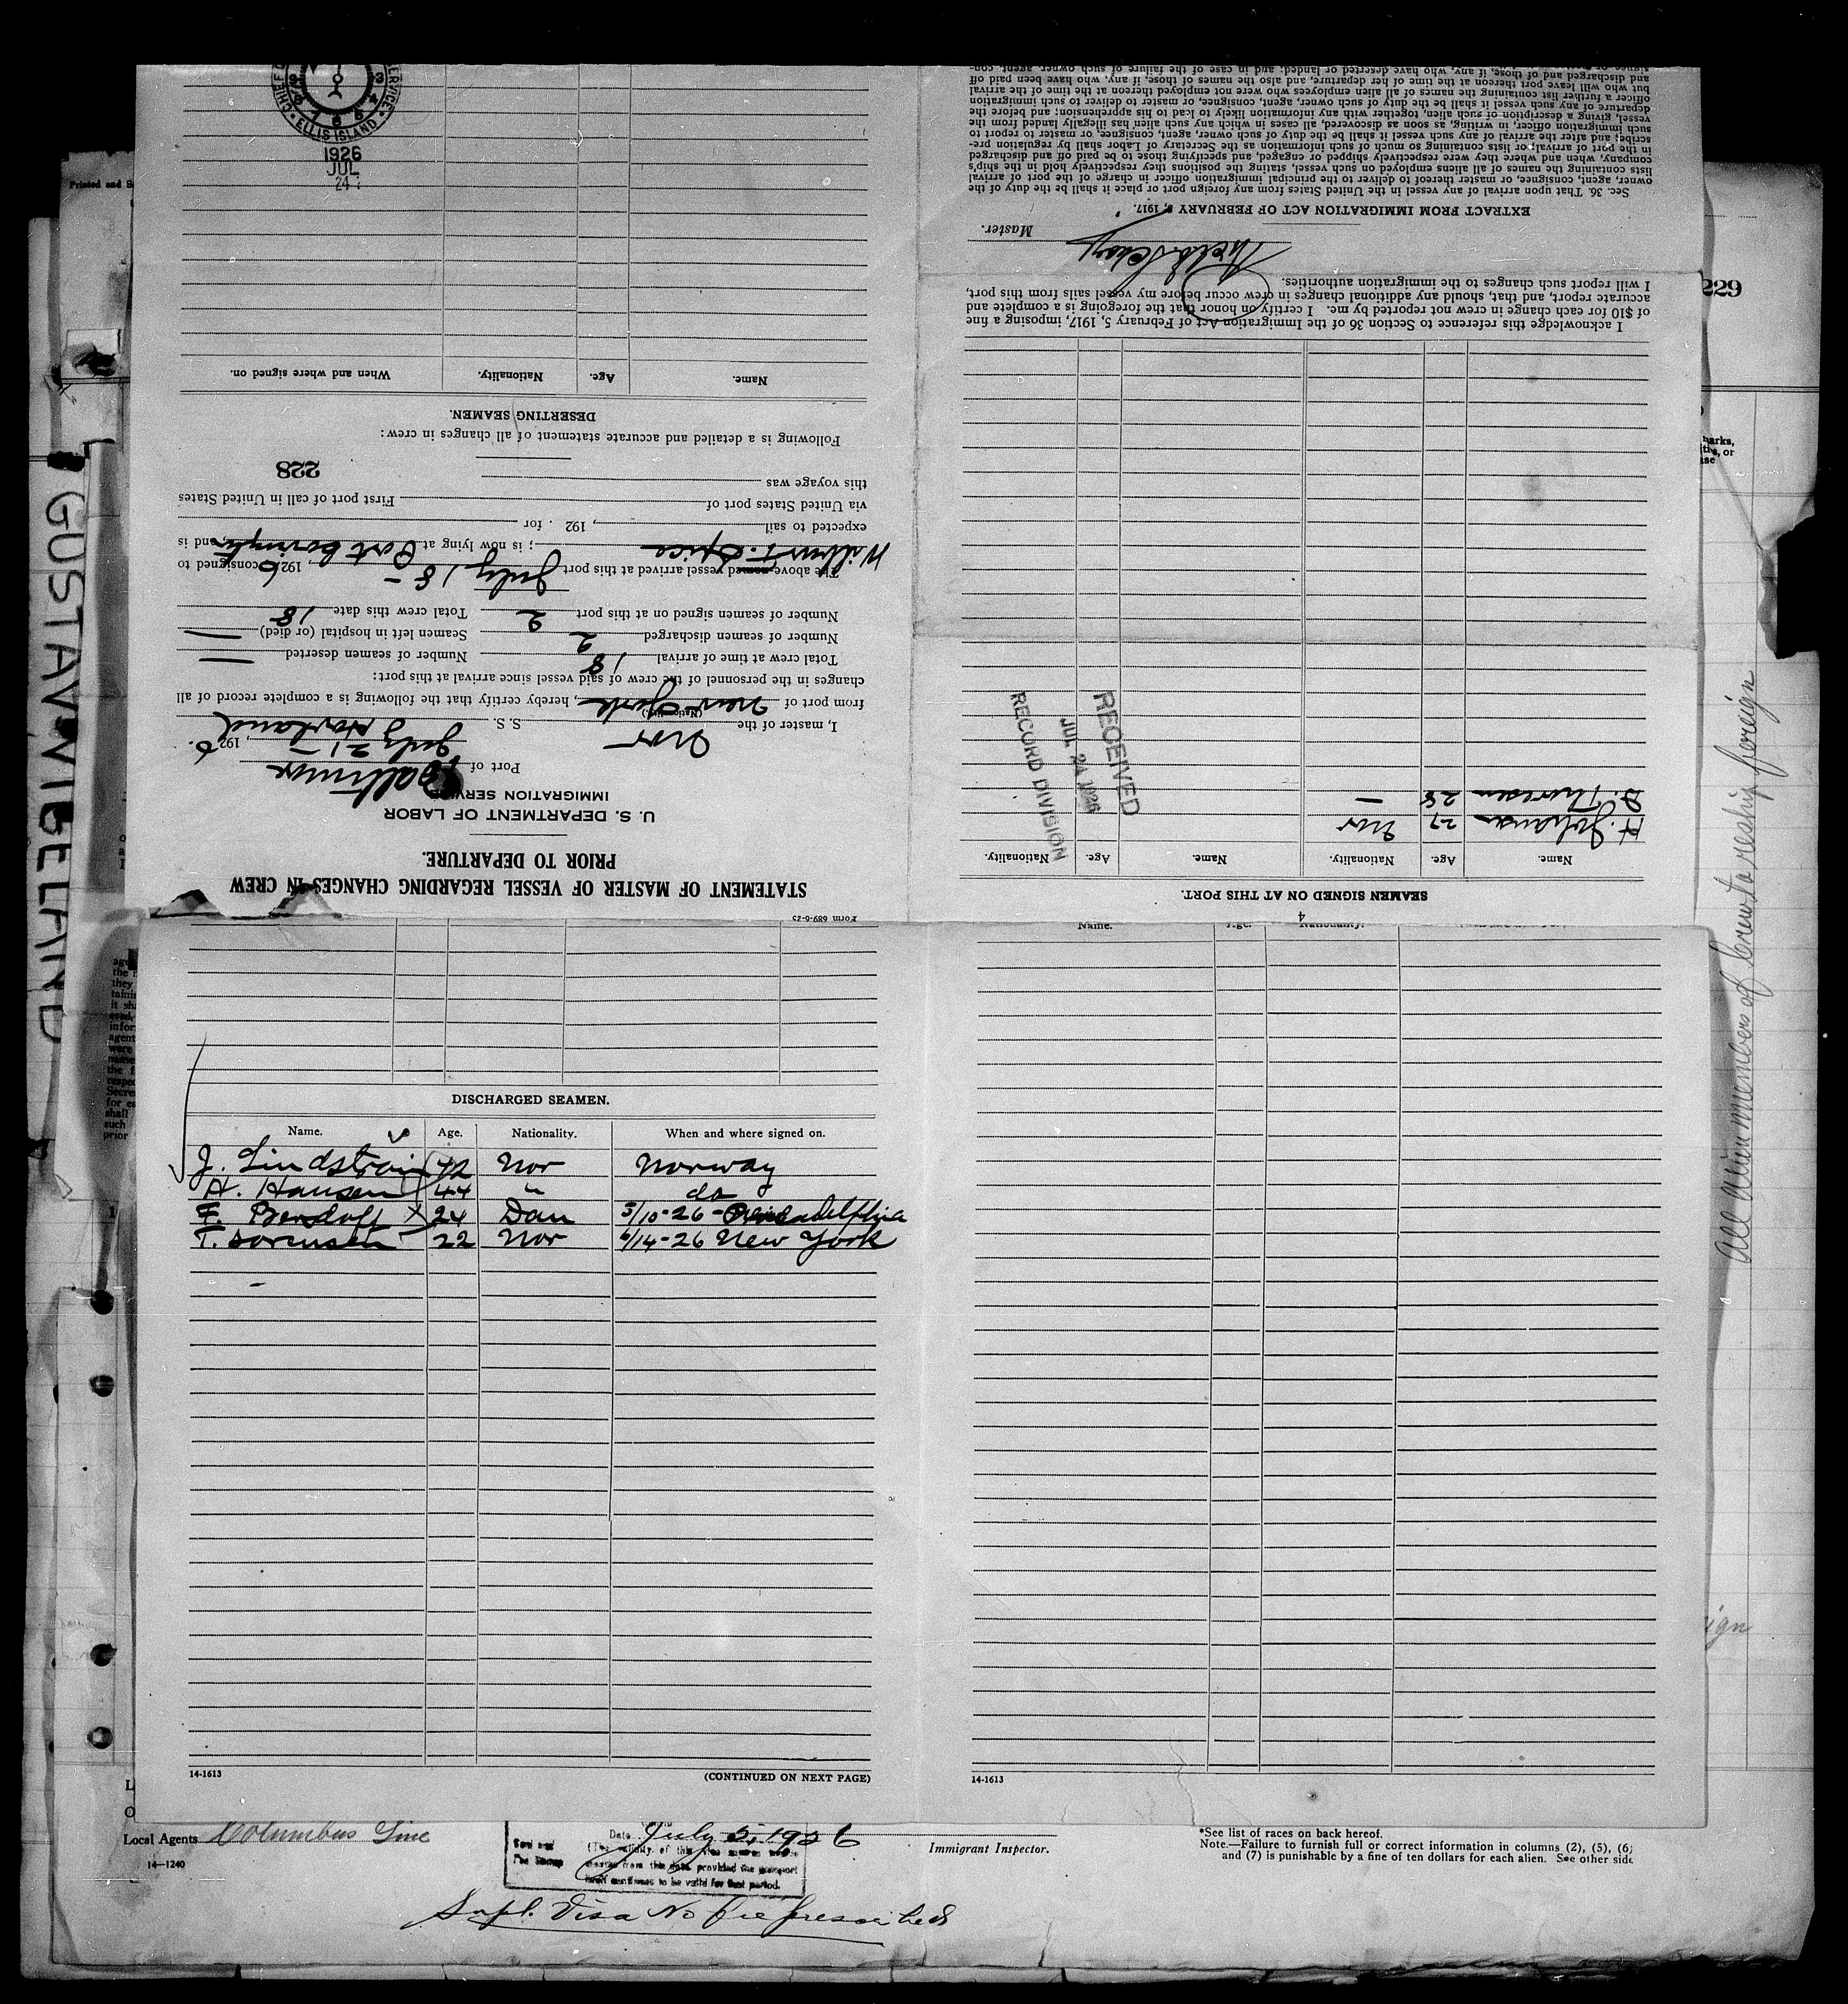 CHIEF
SERVICE
ELLIS ISLAND
1926
JUL
24
Form 689-6-25
STATEMENT OF MASTER OF VESSEL REGARDING CHANGES IN CREW
PRIOR TO DEPARTURE.
U. S. DEPARTMENT OF LABOR
IMMIGRATION SERVICE
Port of Baltimore
July 21 - , 1926.
I, master of the Nor S. S. Hovland
(Nationality.)
from port of New York, hereby certify that the following is a complete record of all
changes in the personnel of the crew of said vessel since arrival at this port:
Total crew at time of arrival 18 Number of seamen deserted —
Number of seamen discharged 2 Seamen left in hospital (or died) —
Number of seamen signed on at this port 2 Total crew this date 18
The above-named vessel arrived at this port July 18 - , 1926 consigned to
Wilbur F. Spice ; is now lying at Port Covington, and is
expected to sail , 192 . for
via United States port of First port of call in United States
this voyage was
228
Following is a detailed and accurate statement of all changes in crew:
DESERTING SEAMEN.
Name. Age. Nationality. When and where signed on.
4
SEAMEN SIGNED ON AT THIS PORT.
Name. Age. Nationality. Name. Age. Nationality.
H. Johansen 27 Nor
D. Thoresen 28 —
RECEIVED
JUL 24 1926
RECORD DIVISION
I acknowledge this reference to Section 36 of the Immigration Act of February 5, 1917, imposing a fine
of $10 for each change in crew not reported by me. I certify on honor that the foregoing is a complete and
accurate report, and that, should any additional changes in crew occur before my vessel sails from this port,
I will report such changes to the immigration authorities.
Master.
EXTRACT FROM IMMIGRATION ACT OF FEBRUARY 5, 1917.
Sec. 36. That upon arrival of any vessel in the United States from any foreign port or place it shall be the duty of the
owner, agent, consignee, or master thereof to deliver to the principal immigration officer in charge of the port of arrival
lists containing the names of all aliens employed on such vessel, stating the positions they respectively hold in the ship's
company, when and where they were respectively shipped or engaged, and specifying those to be paid off and discharged
in the port of arrival; or lists containing so much of such information as the Secretary of Labor shall by regulation pre-
scribe; and after the arrival of any such vessel it shall be the duty of such owner, agent, consignee, or master to report to
such immigration officer, in writing, as soon as discovered, all cases in which any such alien has illegally landed from the
vessel, giving a description of such alien, together with any information likely to lead to his apprehension; and before the
departure of any such vessel it shall be the duty of such owner, agent, consignee, or master to deliver to such immigration
officer a further list containing the names of all alien employees who were not employed thereon at the time of the arrival
but who will leave port thereon at the time of her departure, and also the names of those, if any, who have been paid off
and discharged and of those, if any, who have deserted or landed; and in case of the failure of such owner, agent, con-
Name. Age. Nationality.
DISCHARGED SEAMEN.
Name. Age. Nationality. When and where signed on.
J. Lindstrom 42 Nor Norway
H. Hansen 44 " do
F. Bendoff 24 Dan 5/10-26 - Philadelphia
T. Sorensen 22 Nor 6/14-26 New York
14-1613 (CONTINUED ON NEXT PAGE)
14-1613
Printed and
GUSTAV VIGELAND
229
marks,
or
All alien members of crew to reship foreign
Local Agents Columbus Line
14—1240
Date July 5, 1926
Seal and
Fee Stamp
(The validity of this visa
months from this date, provided the passport
itself continues to be valid for that period.
Immigrant Inspector.
Supl. Visa No fee prescribed
*See list of races on back hereof.
Note.—Failure to furnish full or correct information in columns (2), (5), (6)
and (7) is punishable by a fine of ten dollars for each alien. See other side